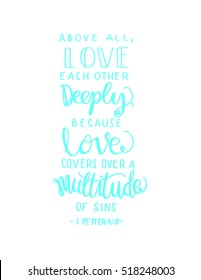 ABOVE ALL,
LOVE
EACH OTHER
Deeply,
BECAUSE
Love
COVERS OVER A
Multitude
OF SINS
- 1 PETER 4:8 -
518248003